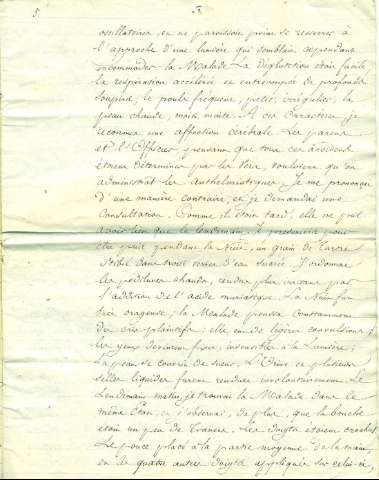 5.
oscillatoire, et ne paroissoit point se resserrer à
l'approche d'une lumière qui sembloit cependant
incommoder la Malade. La déglutition étoit facile
la respiration accélérée et entrecoupée de profonds
soupirs; le pouls fréquent, petit, irrégulier; la
peau chaude, mais moite. À ces caractères je
reconnus une affection cérébrale. Les parens
et l'Officier, pensant que tous ces accidens
étoient déterminés par les Vers, vouloient qu'on
administrât les Anthelmintiques. Je me prononçai
d'une manière contraire, et je demandai une
Consultation. Comme il étoit tard, elle ne put
avoir lieu que le lendemain. Je prescrivis pour
être pris pendant la Nuit, un grain de Tartre
Stibié dans trois verres d'eau sucrée. J'ordonnai
les pédiluves chauds, rendus plus par
l'addition de l'acide muriatique. La Nuit fut
très orageuse; la Malade poussa constamment
des cris plaintifs; elle eut de légères convulsions;
les yeux devinrent fixes, insensibles à la Lumière;
la peau se couvrit de sueur. L'Urine et plusieurs
selles liquides furent rendues involontairement. Le
Lendemain matin, je trouvai la Malade dans le
même État, et j'observai, de plus, que la bouche
étoit un peu de travers. Les doigts étoient crochus
Le pouce placé à la partie moyenne de la main,
et les quatre autres doigts appliqués sur celui-ci,